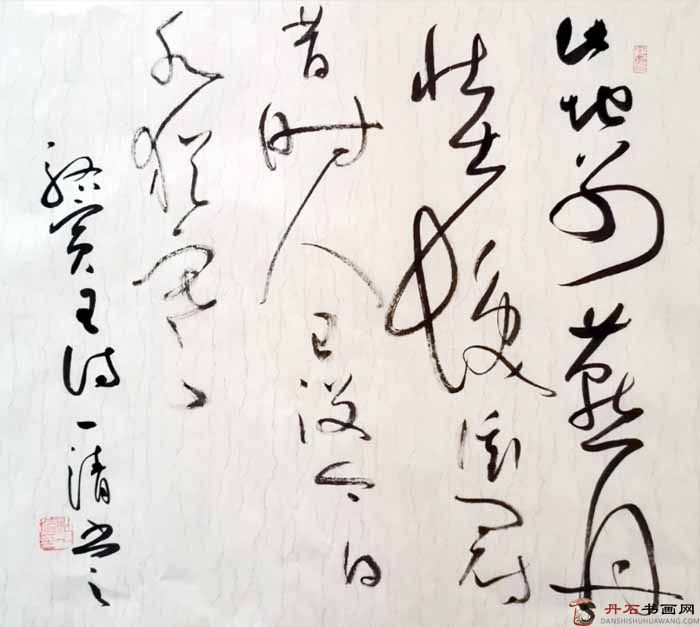 此地别燕丹
壮士发冲冠
昔时人已没今日
水犹寒
骆宾王诗一清书之
丹石书画网
DANSHISHUHUAWANG.COM